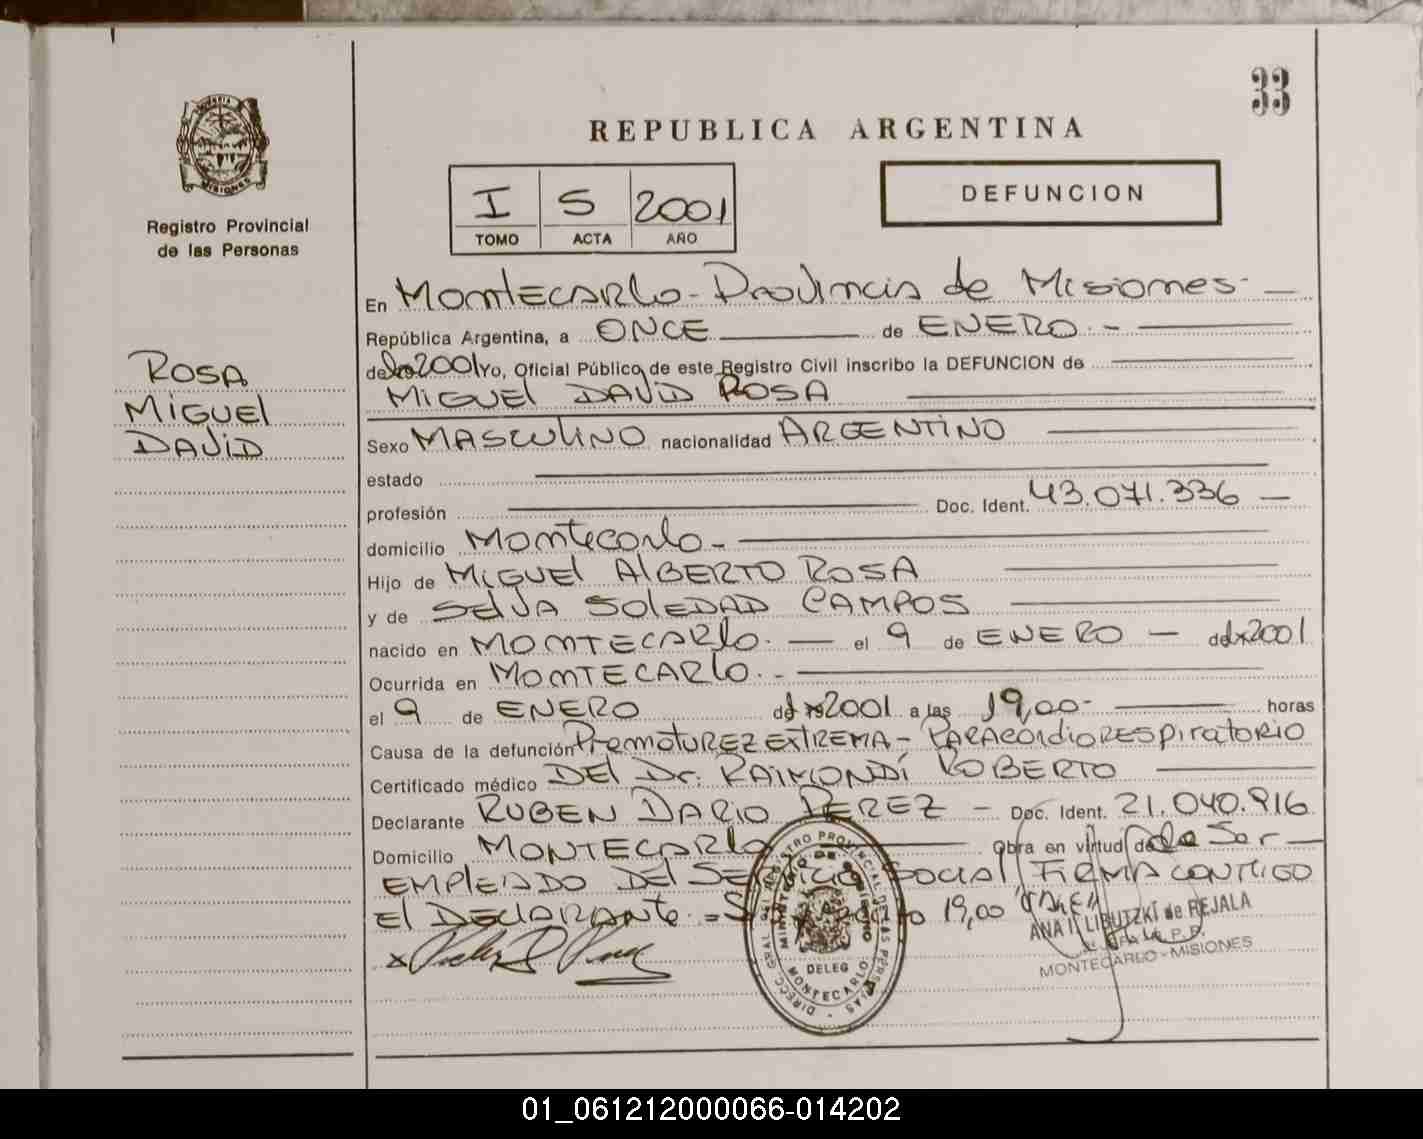 33
REPUBLICA ARGENTINA
MISIONES
Registro Provincial
de las Personas
I S 2001
TOMO ACTA AÑO
DEFUNCION
ROSA
MIGUEL
DAVID
En MONTECARLO - Provincia de Misiones -
República Argentina, a ONCE de ENERO. -
de 2001 Yo, Oficial Público de este Registro Civil inscribo la DEFUNCION de
MIGUEL DAVID ROSA
Sexo MASCULINO nacionalidad ARGENTINO
estado
profesión Doc. Ident. 43.071.336 -
domicilio Montecarlo -
Hijo de MIGUEL ALBERTO ROSA
y de SELVA SOLEDAD CAMPOS
nacido en MONTECARLO. - el 9 de ENERO - de 2001
Ocurrida en MONTECARLO. -
el 9 de ENERO de 2001 a las 19,00- horas
Causa de la defunción PrematUREZ EXTREMA - PARACardioRESpiratorio
Certificado médico DEL Dr. RAIMONDÍ ROBERTO
Declarante RUBEN DARIO PEREZ - Doc. Ident. 21.040.916
Domicilio MONTECARLO Obra en virtud de de Ser
EMPLEADO DEL SERVICIO SOCIAL FIRMA CONMIGO
El DECLARANTE. = 19,00 "VALE"
ANA I. LIBUTZKI de REJALA
R.P.P.
MONTECARLO - MISIONES
DIRECC. GRAL. DEL REGISTRO PROVINCIAL DE LAS PERSONAS
MINISTERIO DE GOBIERNO
DELEG
MONTECARLO
01_061212000066-014202